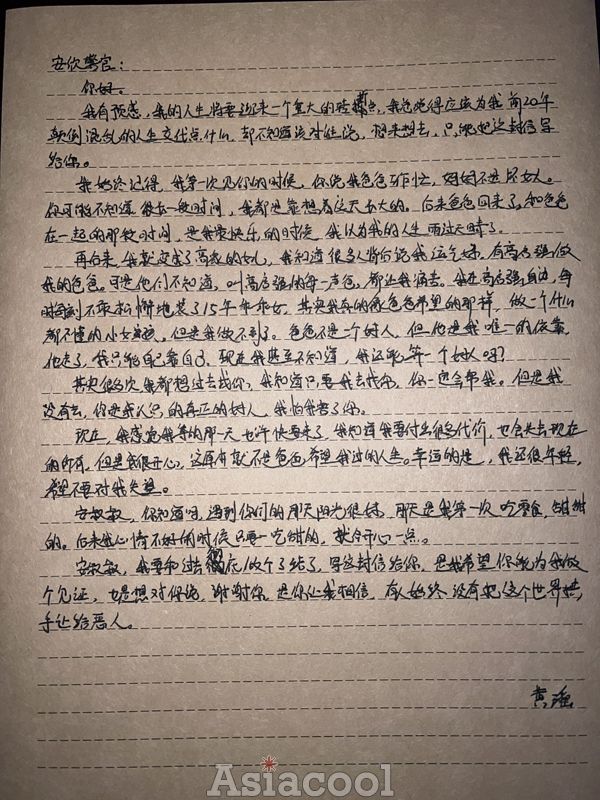 安欣警官：
你好。
我有预感，我的人生将要迎来一个重大的转折点，我总觉得应该为我前20年
颠倒混乱的人生交代点什么，却不知道该对谁说，想来想去，只能把这封信写
给你。
我始终记得，我第一次见你的时候，你说我爸爸工作忙，妈妈不是坏女人。
你可能不知道，很长一段时间，我都是靠想着这天长大的。后来爸爸回来了，和爸爸
在一起的那段时间，是我最快乐的时候，我以为我的人生雨过天晴了。
再后来，我就变成了高家的女儿，我知道很多人背后说我运气好，有高启强做
我的爸爸。可是他们不知道，叫高启强的每一声爸，都让我痛苦。我在高启强身边，每
时每刻不敢松懈地装了15年乖乖女。其实我真的像爸爸希望的那样，做一个什么
都不懂的小女孩，但是我做不到了。爸爸不是一个好人，但他是我唯一的依靠，
他走了，我只能自己靠自己。现在我甚至不知道，我还能算一个好人吗？
其实很多次我都想过去找你，我知道只要我去找你，你一定会帮我。但是我
没有去，你是我认识的真正的好人，我怕我害了你。
现在，我感觉我等的那一天也许快要来了，我知道我要付出很多代价，也会失去现在
的所有，但是我很开心，这原本就不是爸爸希望我过的人生。幸运的是，我还很年轻，
希望不要对我失望。
安叔叔，你知道吗，遇到你们的那天阳光很好，那天是我第一次吃零食，甜甜
的。后来我心情不好的时候只要一吃甜的，就会开心一点。
安叔叔，我要和过去彻底做个了结了，写这封信给你，是我希望你能为我做
个见证，也是想对你说，谢谢你，是你让我相信，有人始终没有把这个世界拱
手让给恶人。
黄瑶
Asiacool